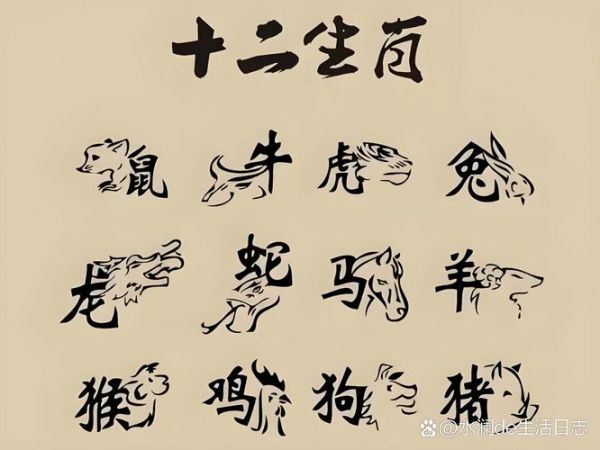 十二生肖
鼠 牛 虎 兔
龙 蛇 马 羊
猴 鸡 狗 猪
@水澜de生活日志